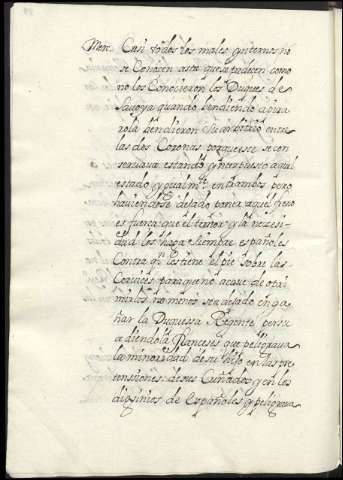 Merc. Casi todos los males ynternos no
se Conocen asta que se padecen como
no los Conocieron los Duques de
Savoya quando bendiendo a pina
rola bendieron su arbitrio entre
las dos Coronas porque este se con
servava estando ynterpuesto aquel
estado ygualmte. entrambas pero
haviendose dejado poner aquel freno
es fuerça que el temor y la necesi
dad los haga siempre españoles
Contra qn. les tiene el pie sobre las
Cervices para que no acave de ota
mirlos no menos se a dejado enga
ñar la Duquessa Regente persu
adiendola franceses que peligrava
la minoridad de su hijo en las pre
tensiones de sus Cuñados y en los
disinios de Españoles y peligrava